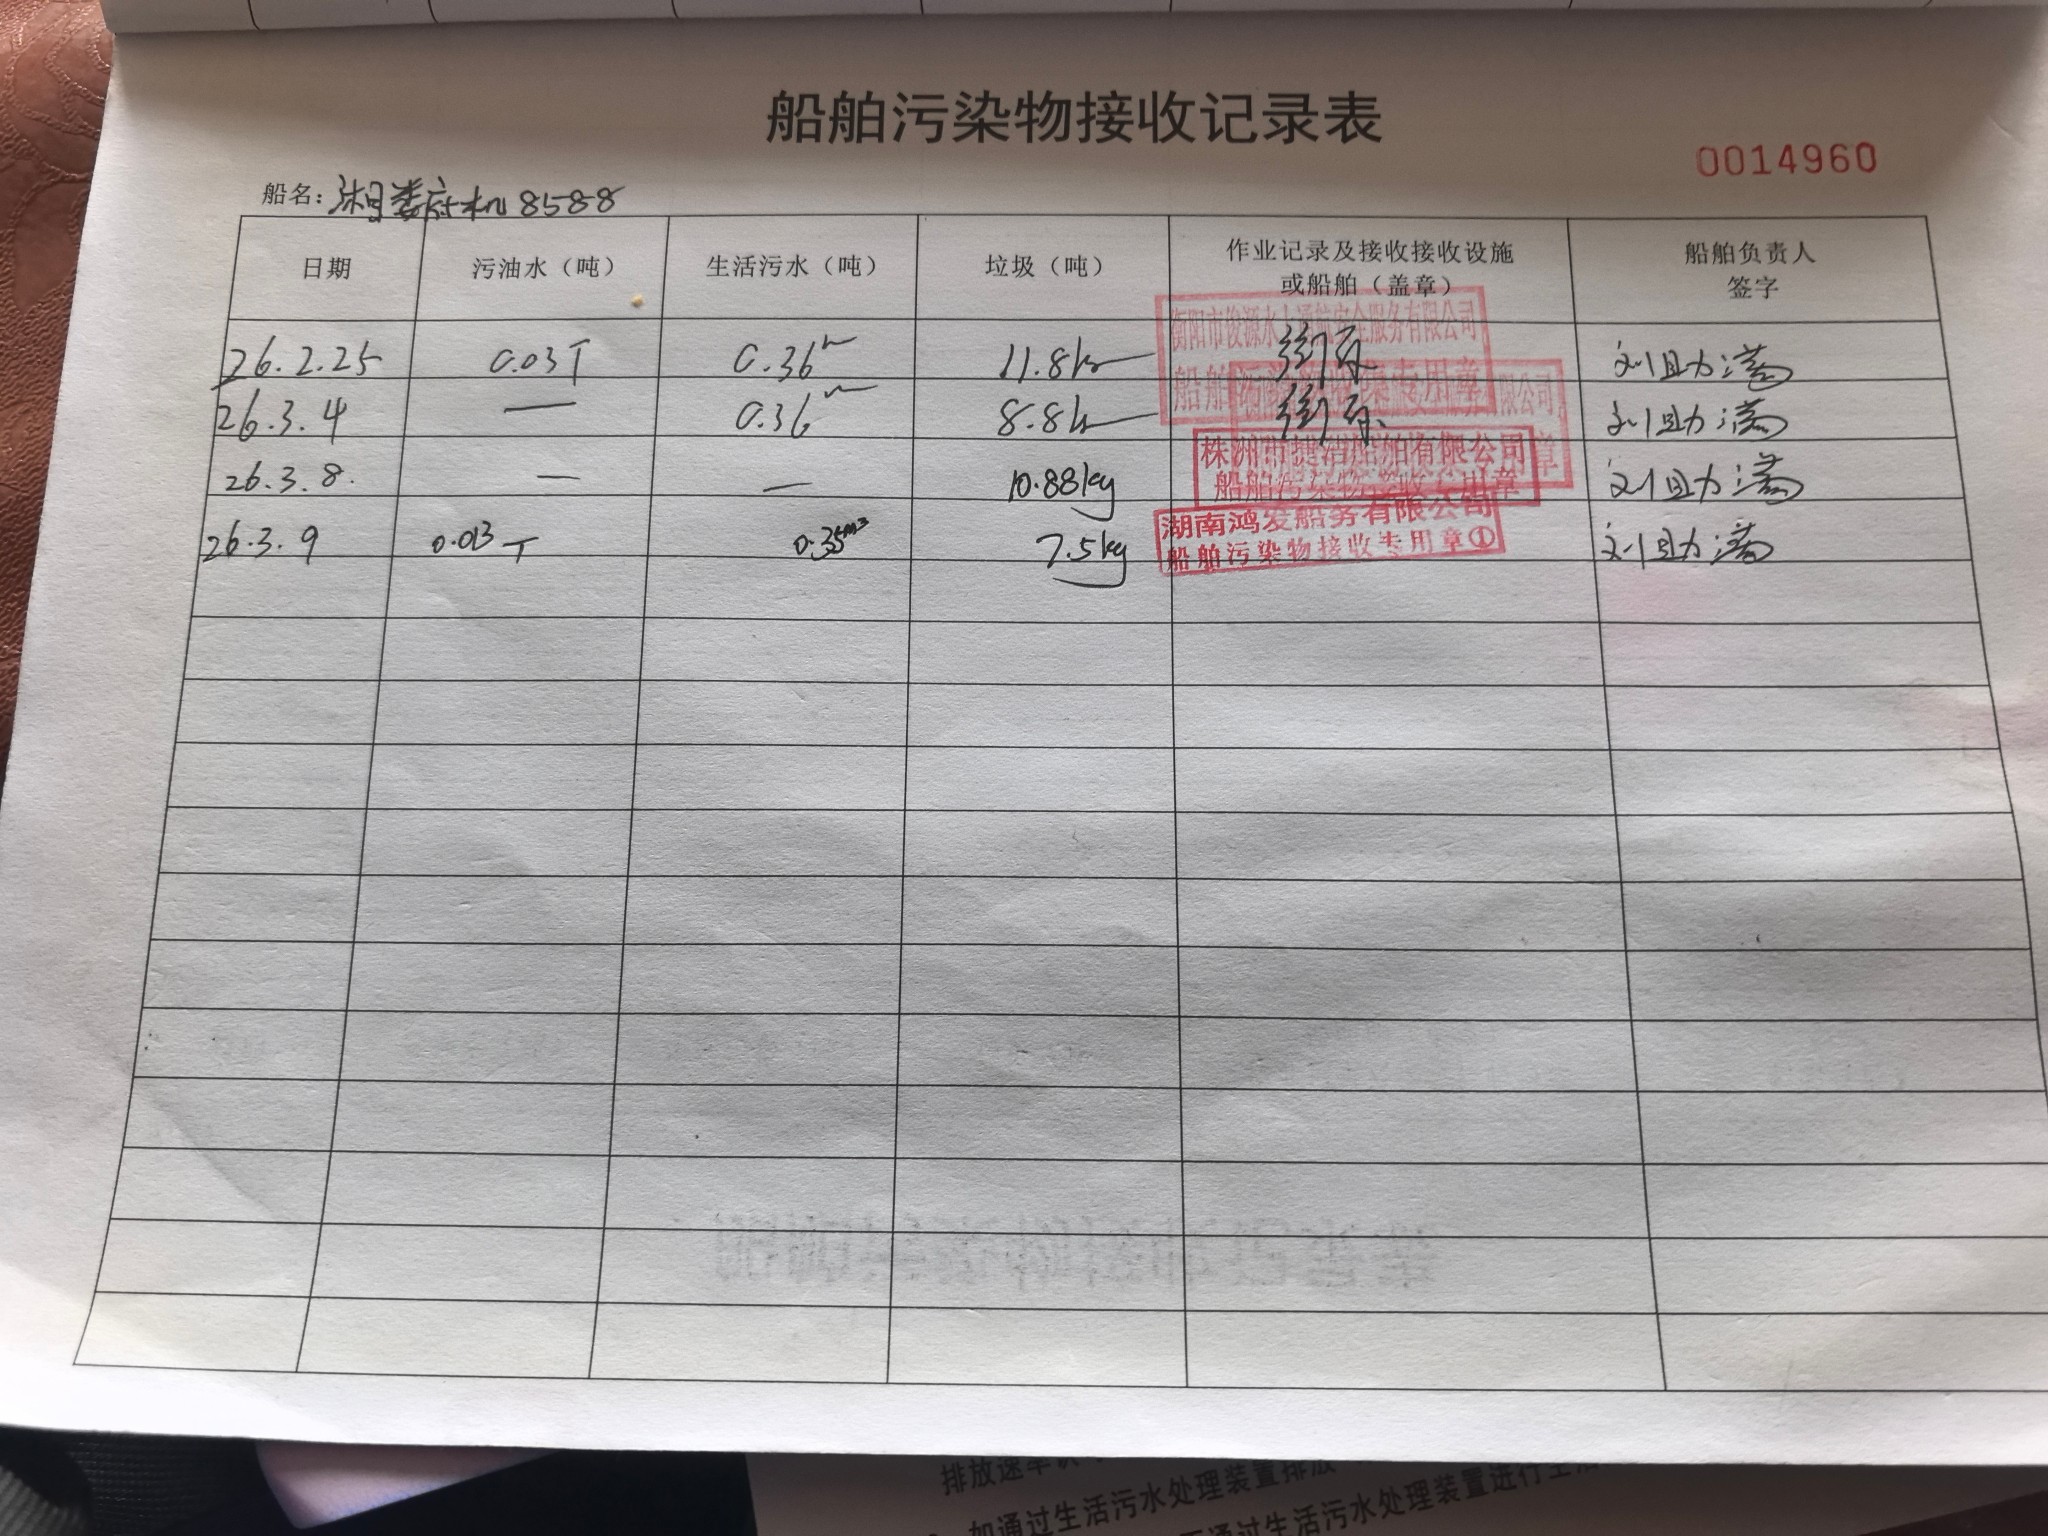 船舶污染物接收记录表
0014960
船名：湘娄府机8588
日期 污油水（吨） 生活污水（吨） 垃圾（吨） 作业记录及接收接收设施或船舶（盖章） 船舶负责人签字
26.2.25 0.03T 0.36 11.8k 刘助满
衡阳市俊源水上通航安全服务有限公司
26.3.4 — 0.36 8.8k 刘助满
26.3.8. — — 10.88kg 刘助满
株洲市捷洁船舶有限公司
船舶污染物接收专用章
26.3.9 0.013T 0.35m³ 7.5kg 刘助满
湖南鸿发船务有限公司
船舶污染物接收专用章①
排放速率
如通过生活污水处理装置排放
通过生活污水处理装置进行生活